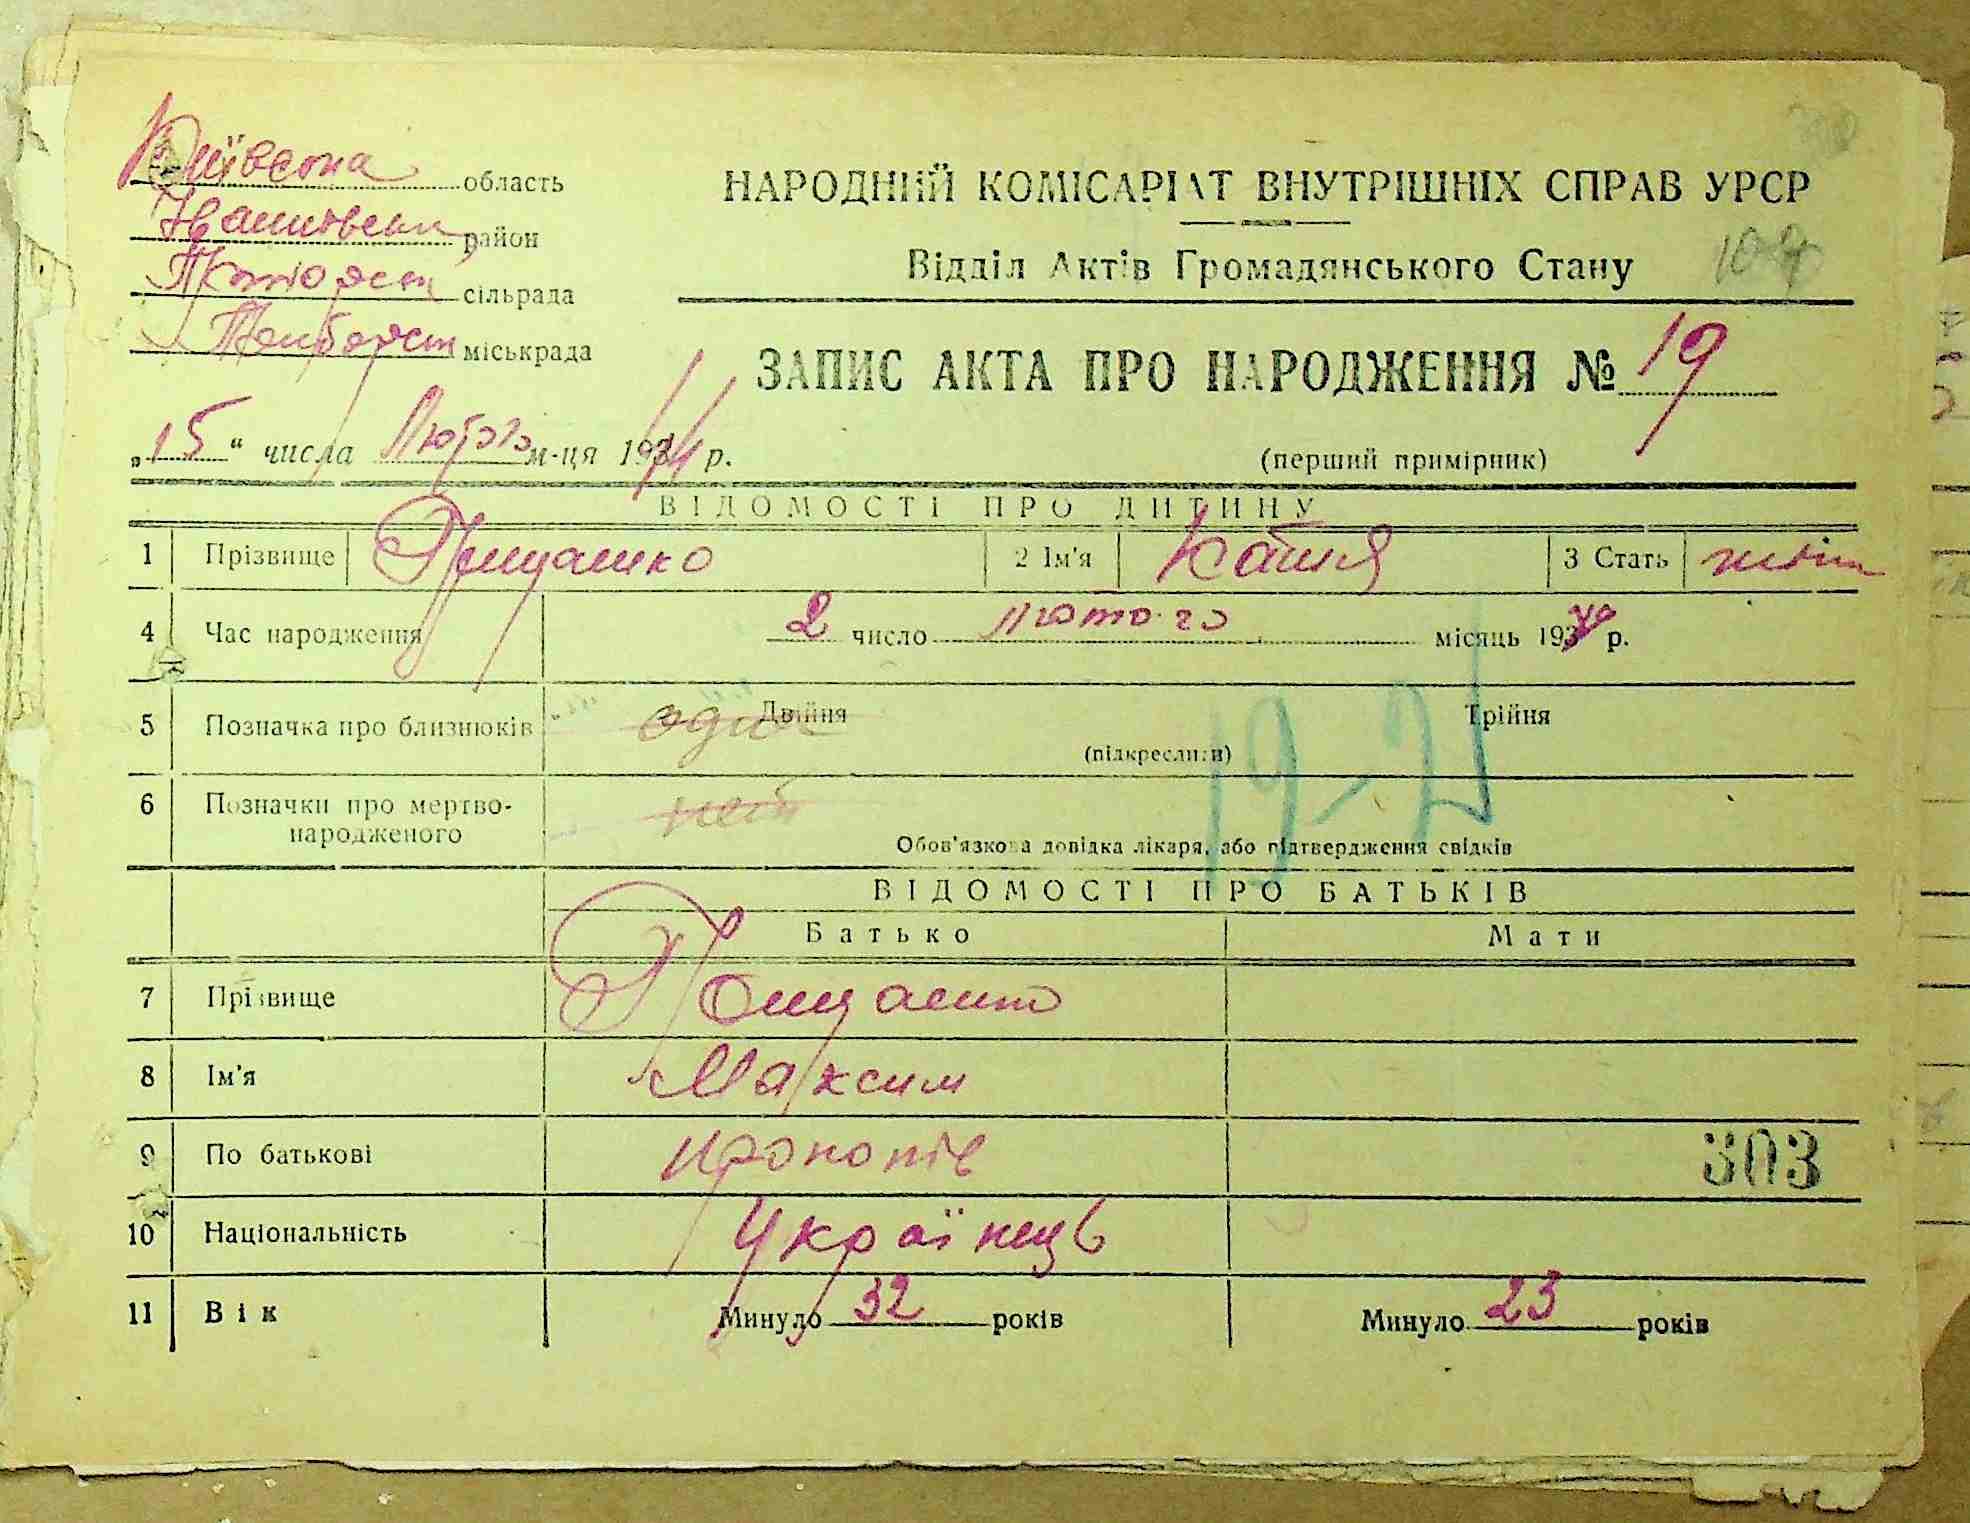 Київська область
район
сільрада
міськрада
НАРОДНИЙ КОМІСАРІАТ ВНУТРІШНІХ СПРАВ УРСР
Відділ Актів Громадянського Стану
ЗАПИС АКТА ПРО НАРОДЖЕННЯ № 19
„15“ числа Лютого м-ця 1941 р.
(перший примірник)
ВІДОМОСТІ ПРО ДИТИНУ
1 Прізвище 2 Ім'я Катя 3 Стать
4 Час народження 2 число лютого місяць 193 р.
5 Позначка про близнюків одно Двійня Трійня
(підкреслити)
6 Позначки про мертво-
народженого нет
Обов'язкова довідка лікаря, або підтвердження свідків
19-21
ВІДОМОСТІ ПРО БАТЬКІВ
Батько Мати
7 Прізвище
8 Ім'я Максим
9 По батькові Прокопів
303
10 Національність Українець
11 Вік Минуло 32 років Минуло 23 років